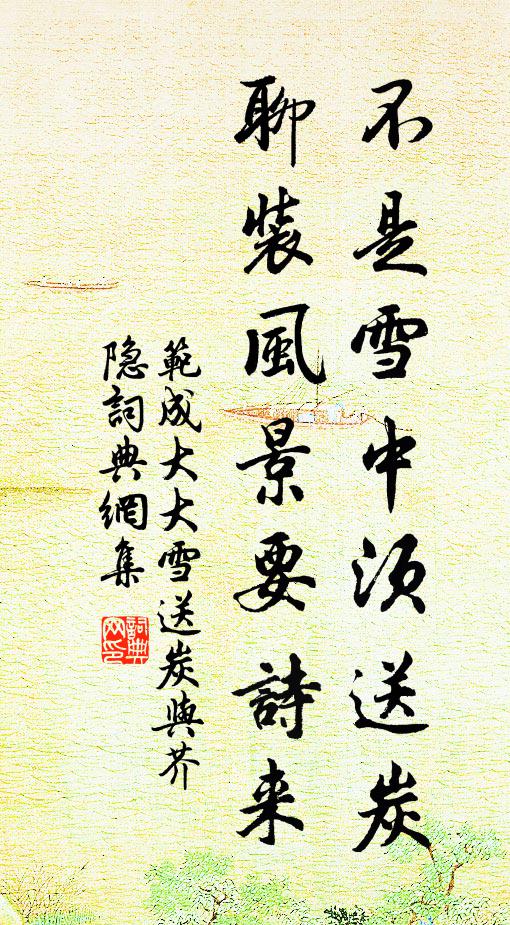 不是雪中須送炭
聊裝風景要詩来
範成大大雪送炭與芥
隐詞典網集
詞典网印